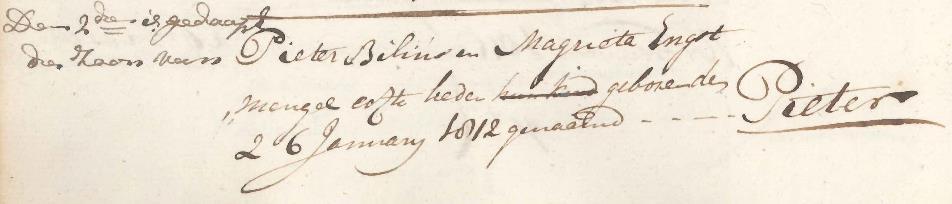 Den 2den is gedaapt
die Zoon van Pieter Bilius en Magrieta Engst
mengel egte lieden hun kind geboren den
26 January 1812 genaamd - - - - - Pieter